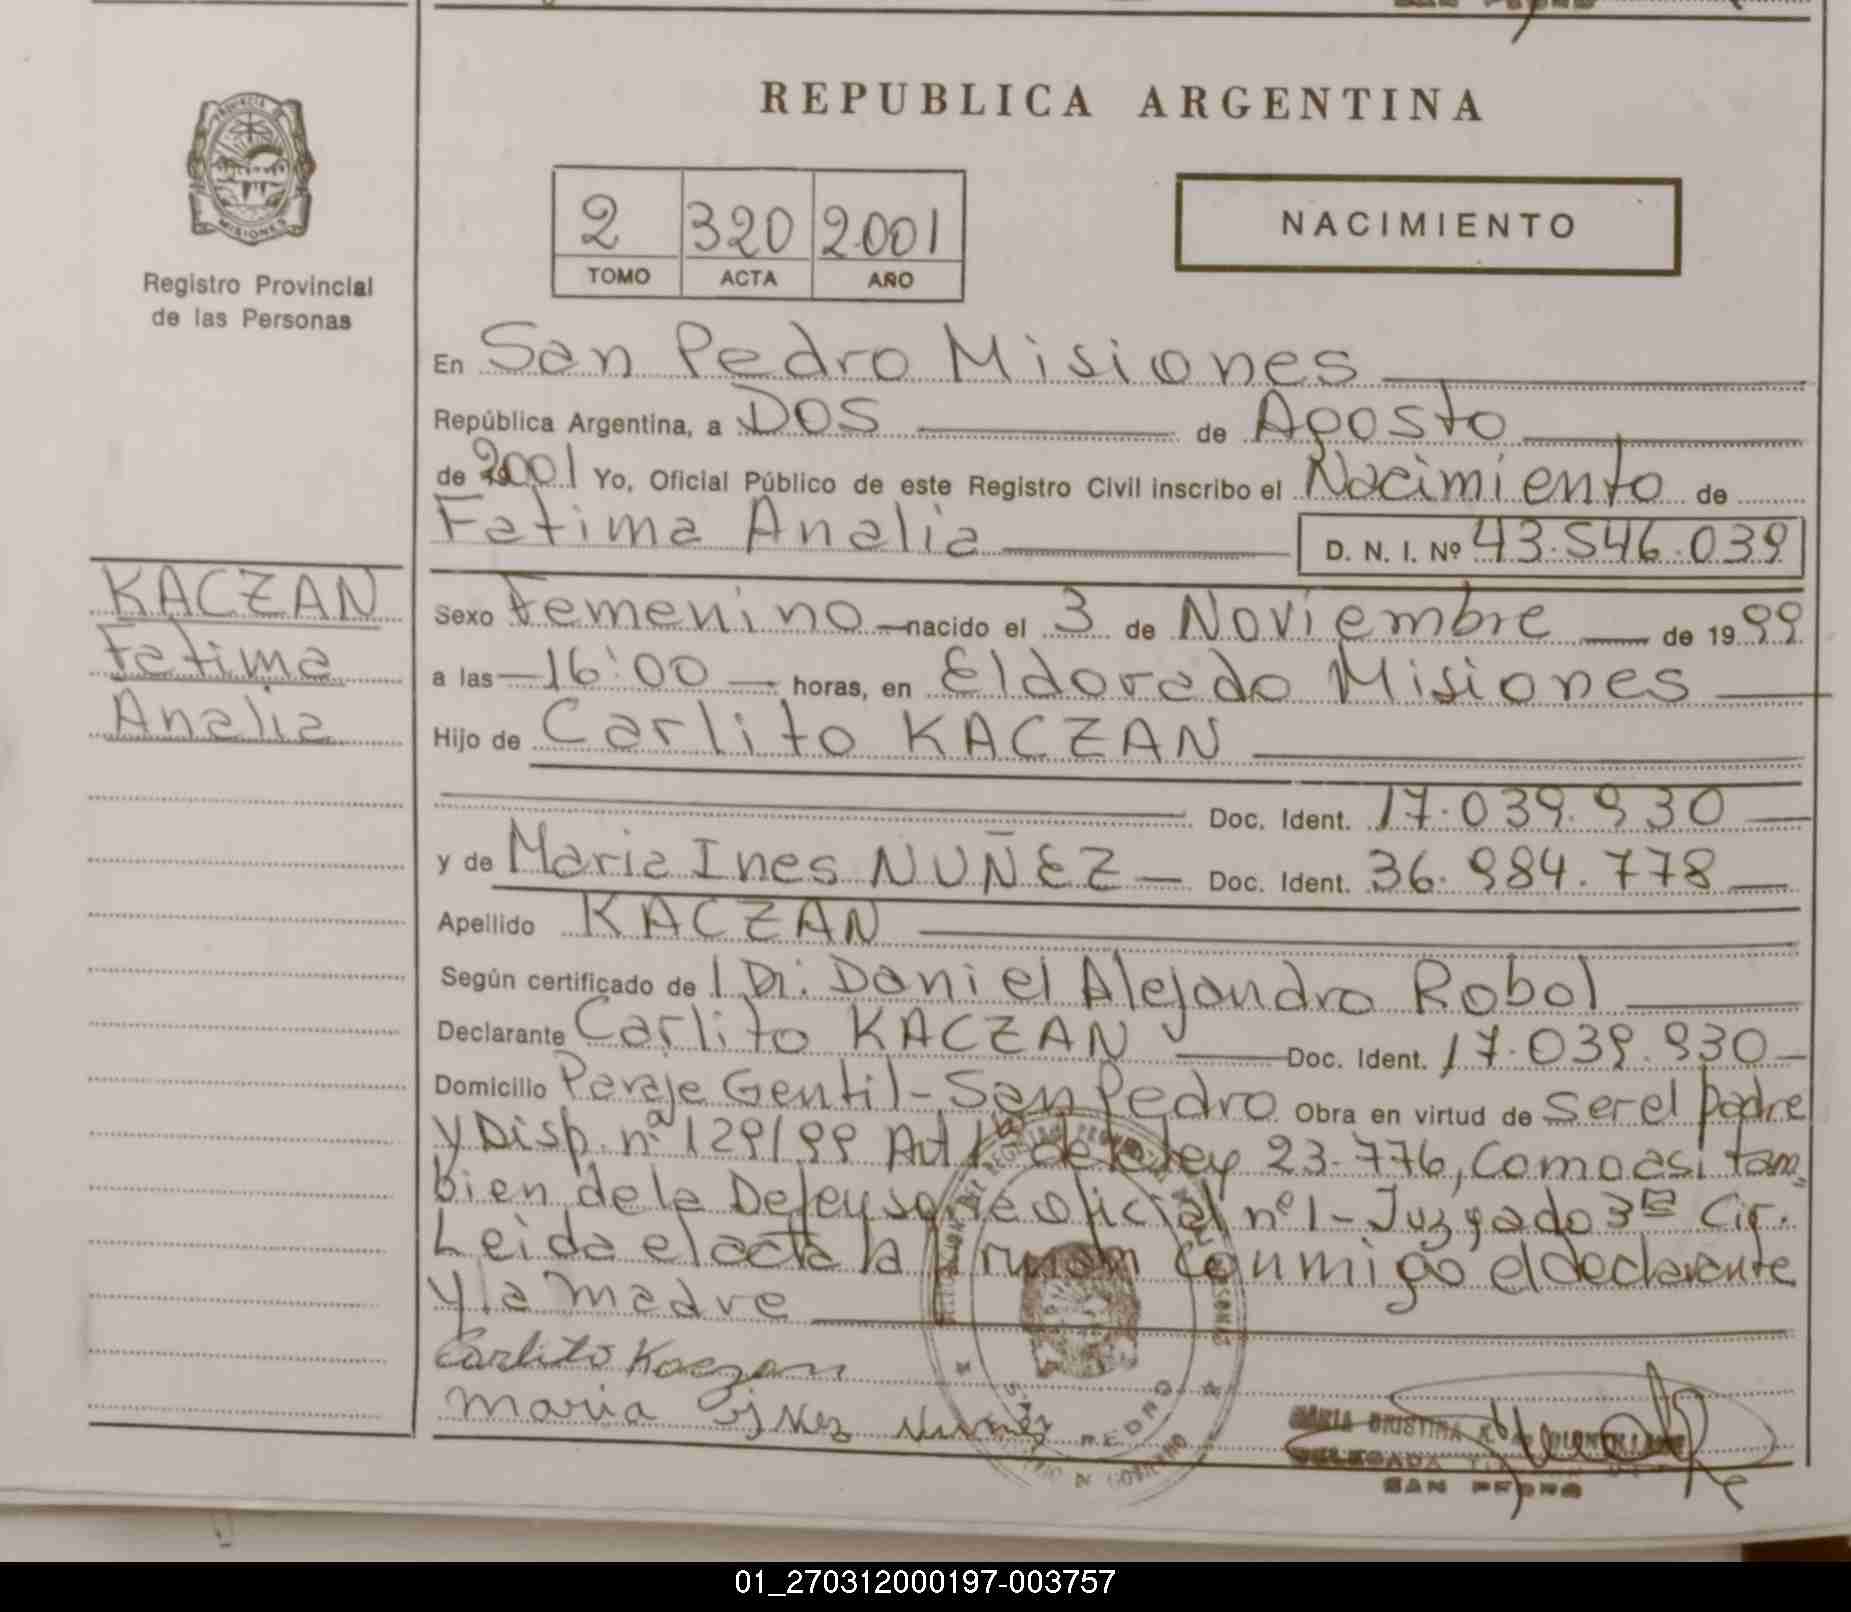 REPUBLICA ARGENTINA
PROVINCIA DE
MISIONES
Registro Provincial
de las Personas
2 320 2001
TOMO ACTA AÑO
NACIMIENTO
En San Pedro Misiones
República Argentina, a DOS de Agosto
de 2001 Yo, Oficial Público de este Registro Civil inscribo el Nacimiento de
Fatima Analia D. N. I. Nº 43.546.039
KACZAN
Fatima
Analia
Sexo Femenino nacido el 3 de Noviembre de 1999
a las 16:00 horas, en Eldorado Misiones
Hijo de Carlito KACZAN
Doc. Ident. 17.039.930
y de Maria Ines NUÑEZ Doc. Ident. 36.984.778
Apellido KACZAN
Según certificado de l Dr. Daniel Alejandro Robol
Declarante Carlito KACZAN Doc. Ident. 17.039.930
Domicilio Paraje Gentil - San Pedro Obra en virtud de ser el padre
y Disp. nº 129/99 Art 1º de la ley 23.776, como asi tam
bien de la Defensoria oficial nº 1 - Juzgado 3ra Cir.
Leida el acta la firman conmigo el declarante
y la madre
Carlito Kaczan
Maria ines Nuñez
MARIA CRISTINA
DELEGADA
SAN PEDRO
01_270312000197-003757